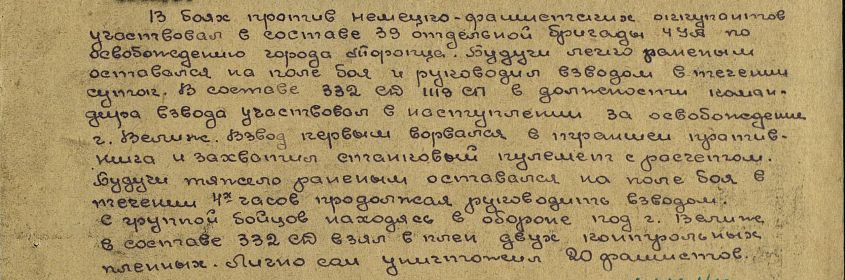 В боях против немецко-фашистских оккупантов
участвовал в составе 39 отдельной бригады 4 УА по
освобождению города Торопца. Будучи легко раненым
оставался на поле боя и руководил взводом в течении
суток. В составе 332 СД 1119 СП в должности коман-
дира взвода участвовал в наступлении за освобождение
г. Велиж. Взвод первым ворвался в траншеи против-
ника и захватил станковый пулемет с расчетом.
Будучи тяжело раненым оставался на поле боя в
течении 4х часов продолжая руководить взводом.
С группой бойцов находясь в обороне под г. Велиж
в составе 332 СД взял в плен двух контрольных
пленных. Лично сам уничтожил 20 фашистов.